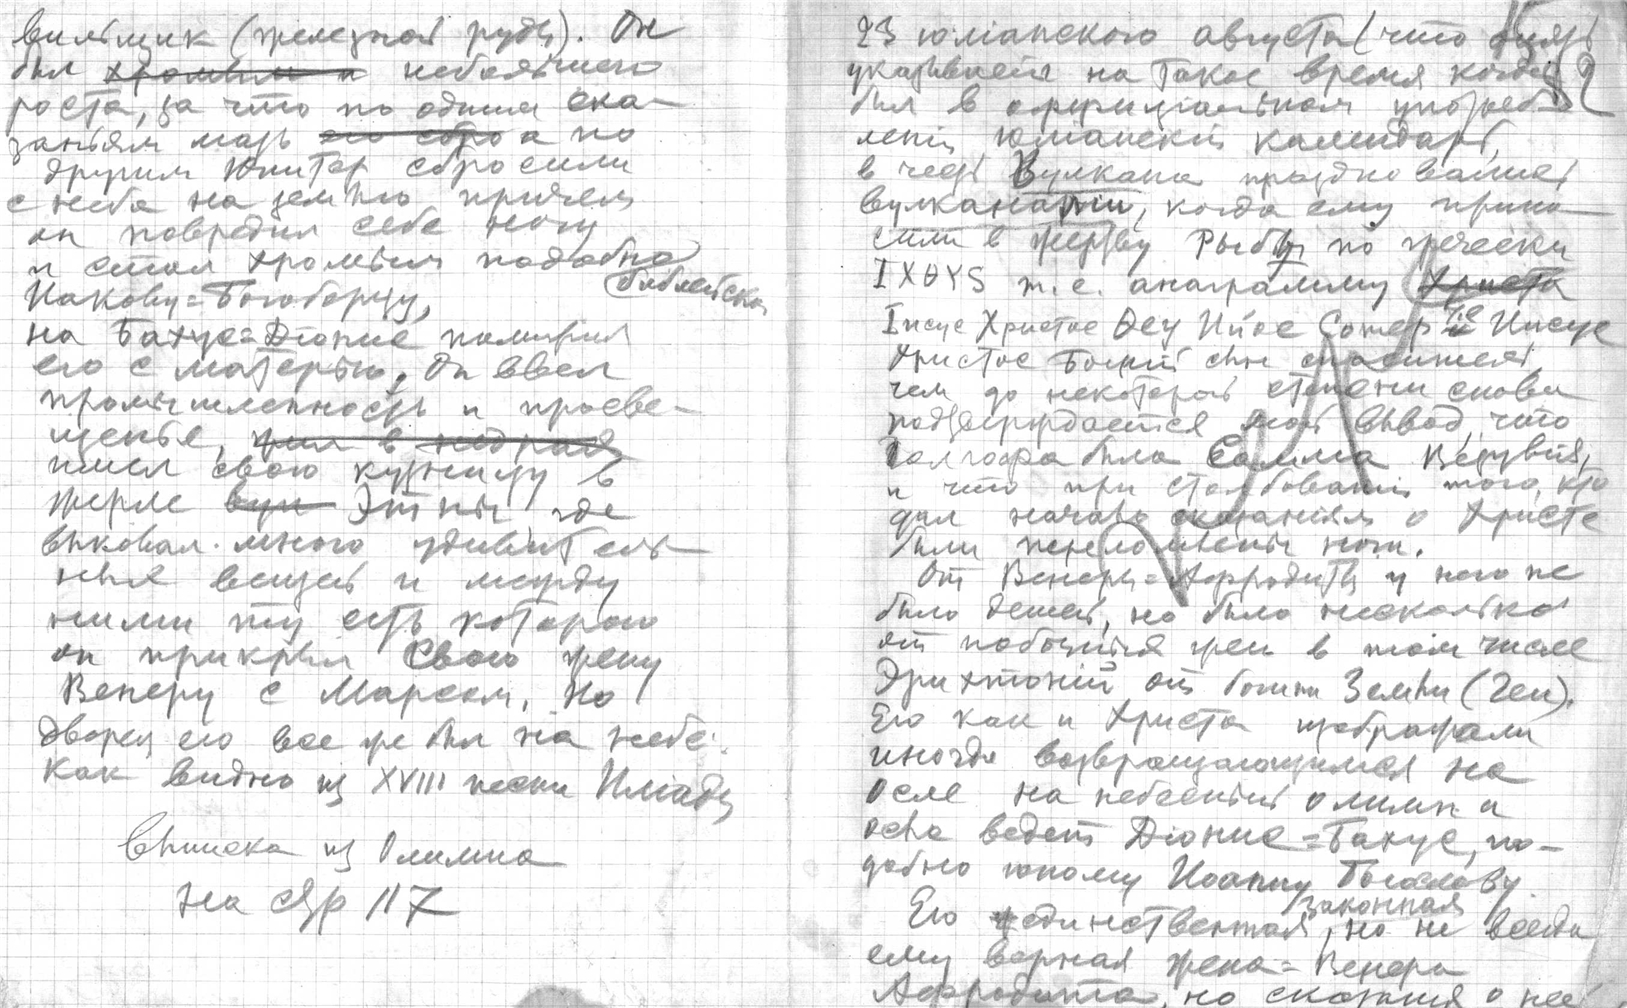 вильщик (железной руды). Он
был хромым и небольшого
роста, за что по одним ска-
заньям мать его сбро а по
другим Юпитер сбросили
с неба на землю причем
он повредил себе ногу
и стал хромым подобно
библейском
Иакову=Богоборцу,
но Бахус=Діонис помирил
его с матерью. Он ввел
промышленность и просве-
щенье, жил в недрах
имел свою кузницу в
жерле вул Этны где
выковал много удивитель-
ных вещей и между
ними ту сеть которою
он прикрыл свою жену
Венеру с Марсом. Но
дворец его все же был на небе.
как видно из XVIII песни Иліады
Выписка из Олимпа
на стр 117
23 юліанского августа (что опять
указывает на такое время когда
был в оффиціальном употреб-
леніи юліанскій календарь,
в честь Вулкана праздновались
вулканаліи, когда ему прино-
сили в жертву Рыбу по гречески
ΙΧΘΥS т.е. анаграмму Христа
Іисус Христос Θеу Ийос Сотер т.е. Иисус
Христос Божій сын спаситель,
чем до некоторой степени снова
подтверждается мой вывод, что
Голгофа была Сомма Везувія,
и что при столбованіи того, кто
дал начало сказаніям о Христе
были переломлены ноги.
От Венеры=Афродиты у него не
было детей, но было несколько
от побочных жен в том числе
Эрихтоній от богини Земли (Геи).
Его как и Христа изображали
иногда возвращающимся на
осле на небесный олимп и
осла ведет Діонис=Бахус, по-
добно юному Иоанну Богослову.
законная
Его единственная, но не всегда
ему верная жена=Венера
Афродита, но сказания о ней